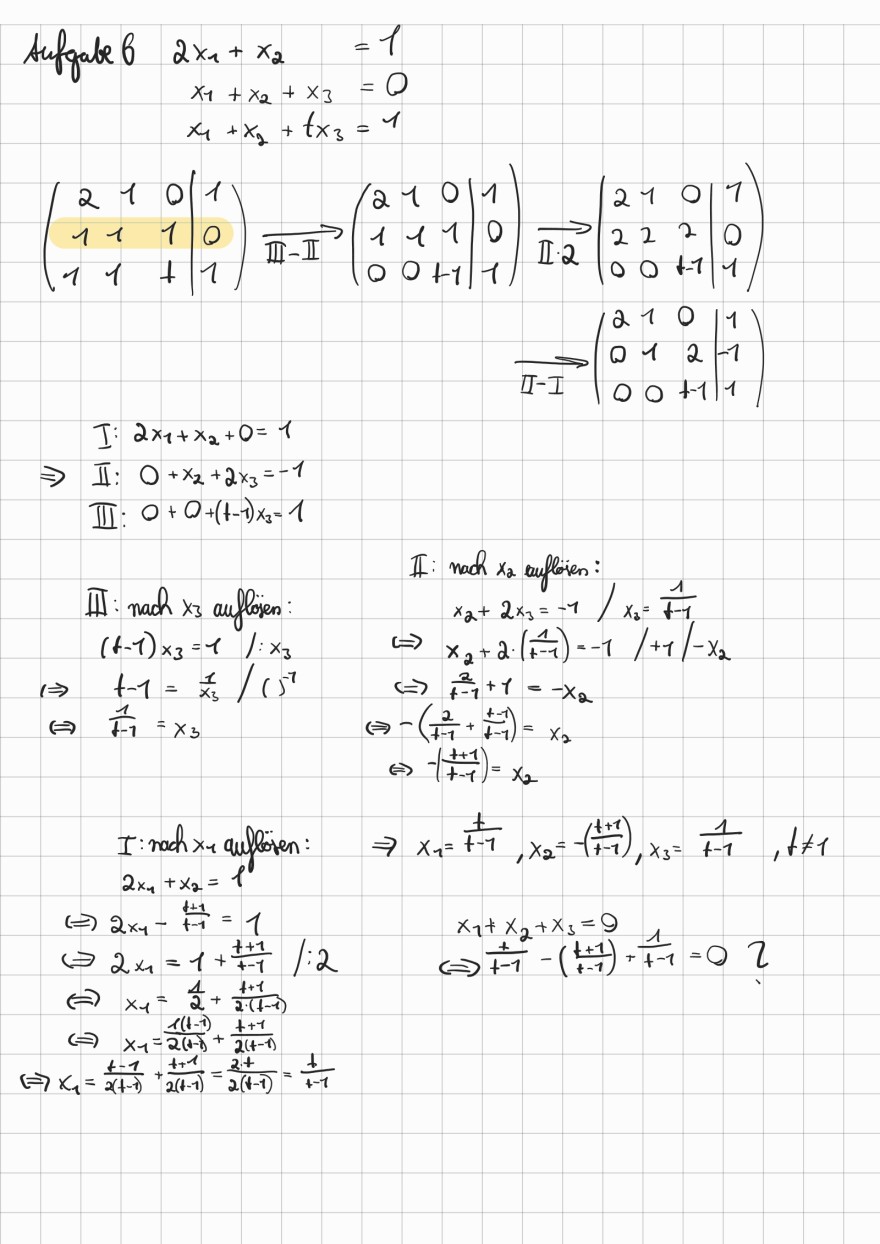 Aufgabe 6 2x₁ + x₂ = 1
x₁ + x₂ + x₃ = 0
x₁ + x₂ + tx₃ = 1
( 2 1 0 | 1 ) ( 2 1 0 | 1 ) ( 2 1 0 | 1 )
( 1 1 1 | 0 ) →III-II ( 1 1 1 | 0 ) →II·2 ( 2 2 2 | 0 )
( 1 1 t | 1 ) ( 0 0 t-1 | 1 ) ( 0 0 t-1 | 1 )
( 2 1 0 | 1 )
→II-I ( 0 1 2 | -1 )
( 0 0 t-1 | 1 )
I: 2x₁ + x₂ + 0 = 1
⇒ II: 0 + x₂ + 2x₃ = -1
III: 0 + 0 + (t-1)x₃ = 1
III: nach x₃ auflösen:
(t-1)x₃ = 1 /: x₃
⇔ t-1 = 1/x₃ / ( )⁻¹
⇔ 1/(t-1) = x₃
II: nach x₂ auflösen:
x₂ + 2x₃ = -1 / x₃ = 1/(t-1)
⇔ x₂ + 2·(1/(t-1)) = -1 /+1 /-x₂
⇔ 2/(t-1) + 1 = -x₂
⇔ -(2/(t-1) + (t-1)/(t-1)) = x₂
⇔ -((t+1)/(t-1)) = x₂
I: nach x₁ auflösen:
2x₁ + x₂ = 1
⇔ 2x₁ - (t+1)/(t-1) = 1
⇔ 2x₁ = 1 + (t+1)/(t-1) /:2
⇔ x₁ = 1/2 + (t+1)/(2·(t-1))
⇔ x₁ = 1(t-1)/(2(t-1)) + (t+1)/(2(t-1))
⇔ x₁ = (t-1)/(2(t-1)) + (t+1)/(2(t-1)) = 2·t/(2(t-1)) = t/(t-1)
⇒ x₁ = t/(t-1) , x₂ = -((t+1)/(t-1)) , x₃ = 1/(t-1) , t≠1
x₁ + x₂ + x₃ = 0
⇔ t/(t-1) - ((t+1)/(t-1)) + 1/(t-1) = 0 ?